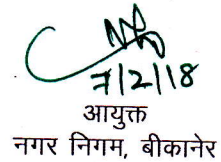 7/2/18
आयुक्त
नगर निगम, बीकानेर